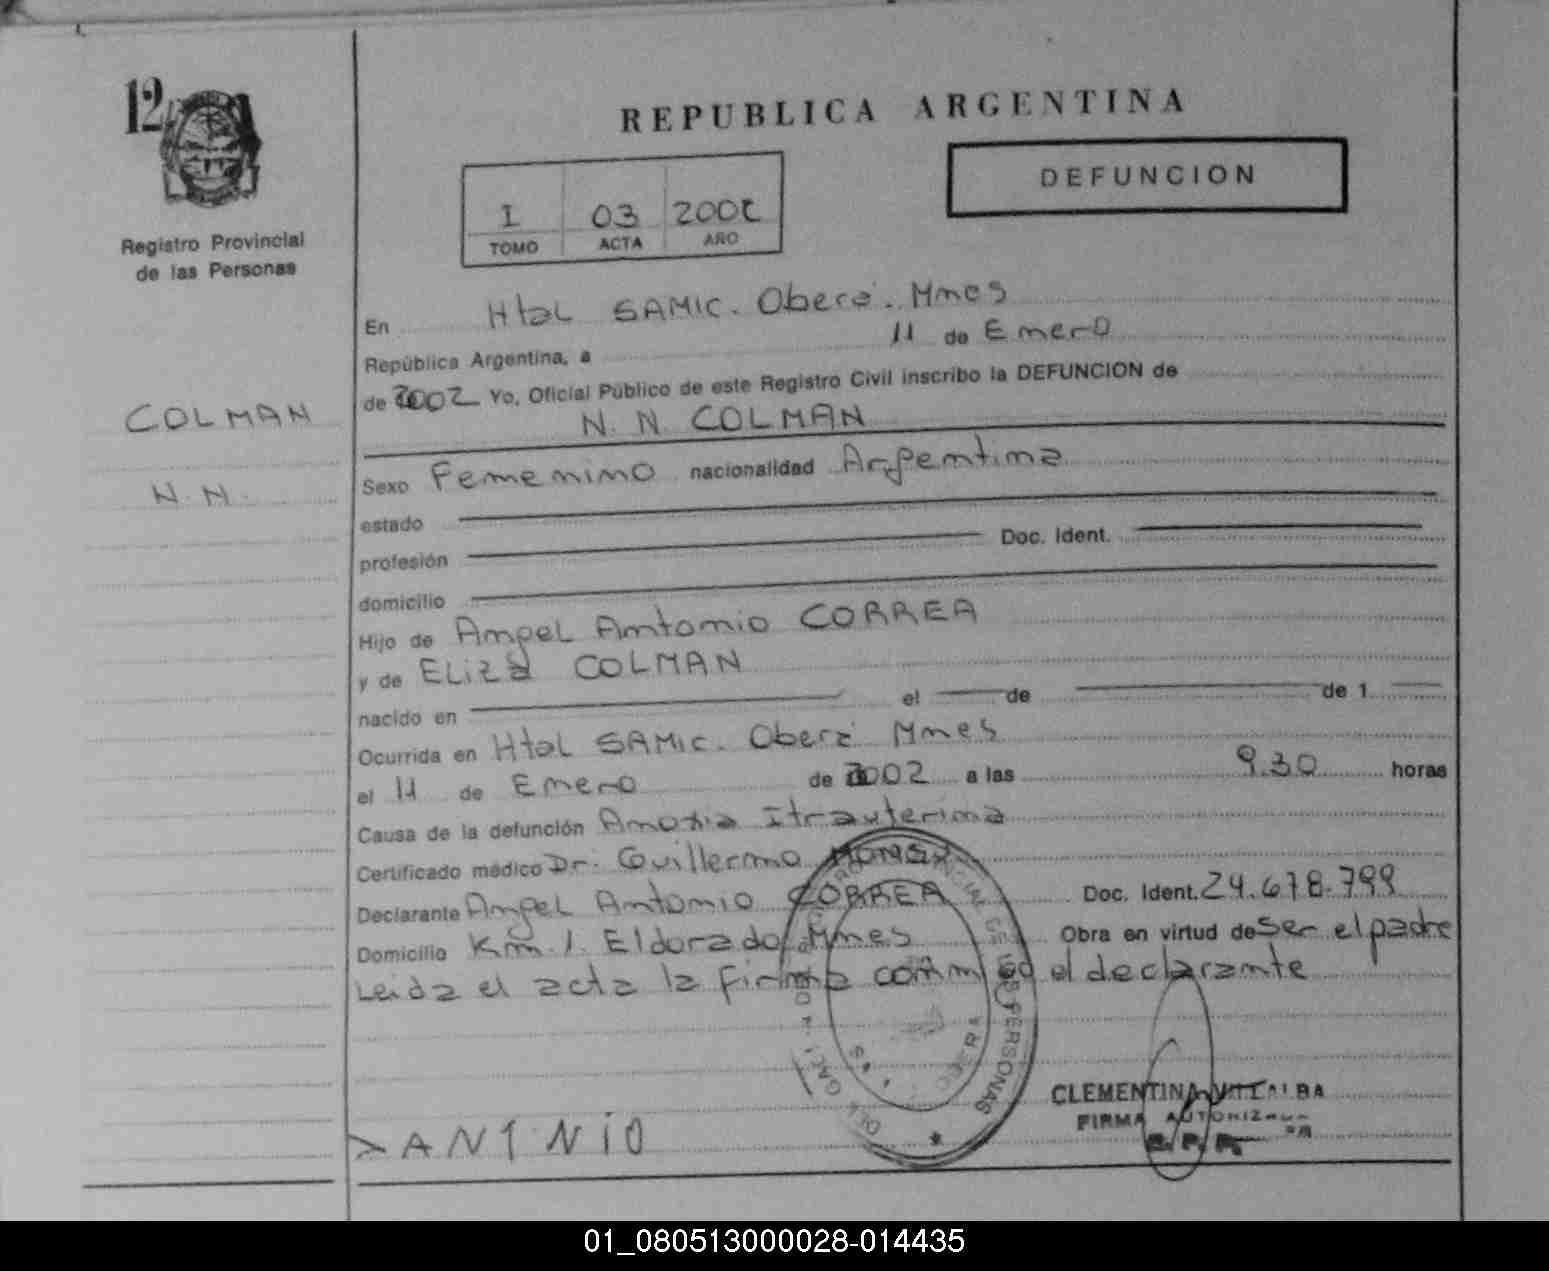 12
Registro Provincial
de las Personas
COLMAN
N.N.
REPUBLICA ARGENTINA
DEFUNCION
I 03 2002
TOMO ACTA AÑO
En Htal SAMIC. Oberá. Mnes
República Argentina, a 11 de Enero
de 2002 Yo, Oficial Público de este Registro Civil inscribo la DEFUNCION de
N. N. COLMAN
Sexo Femenino nacionalidad Argentina
estado
profesión Doc. Ident.
domicilio
Hijo de Angel Antonio CORREA
y de Eliza COLMAN
nacido en el de de 1
Ocurrida en Htal SAMIC. Oberá Mnes
el 11 de Enero de 2002 a las 9.30 horas
Causa de la defunción Anoxia Itrauterina
Certificado médico Dr. Guillermo
Declarante Angel Antonio CORREA Doc. Ident. 24.678.799
Domicilio Km. 1. Eldorado Mnes Obra en virtud de Ser el padre
Leida el acta la firma conmigo el declarante
PERSONAS
CLEMENTINA VILLALBA
FIRMA AUTORIZADA
R.P.P.
ANTNIO
01_080513000028-014435